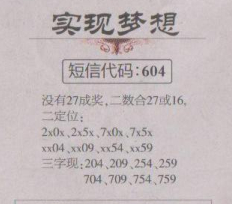 实现梦想
短信代码：604
没有27成奖，二数合27或16，
二定位：
2x0x、2x5x、7x0x、7x5x
xx04、xx09、xx54、xx59
三字现：204、209、254、259
704、709、754、759